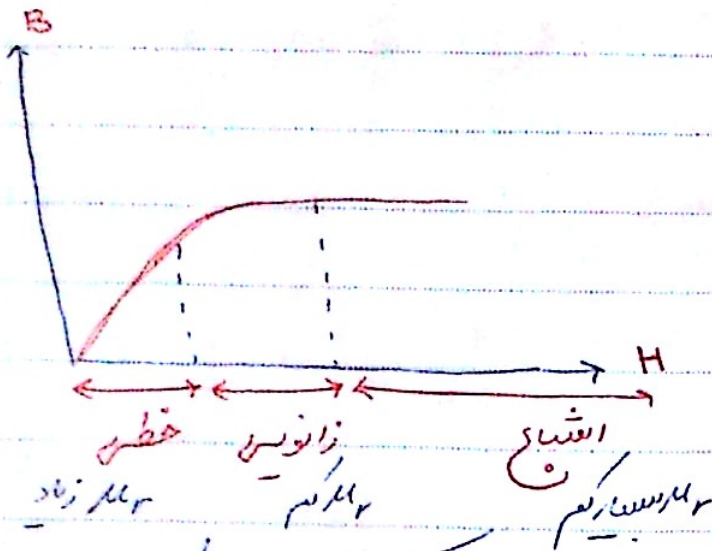 B
H
خطی زانویی اشباع
زیاد کم بسیار کم